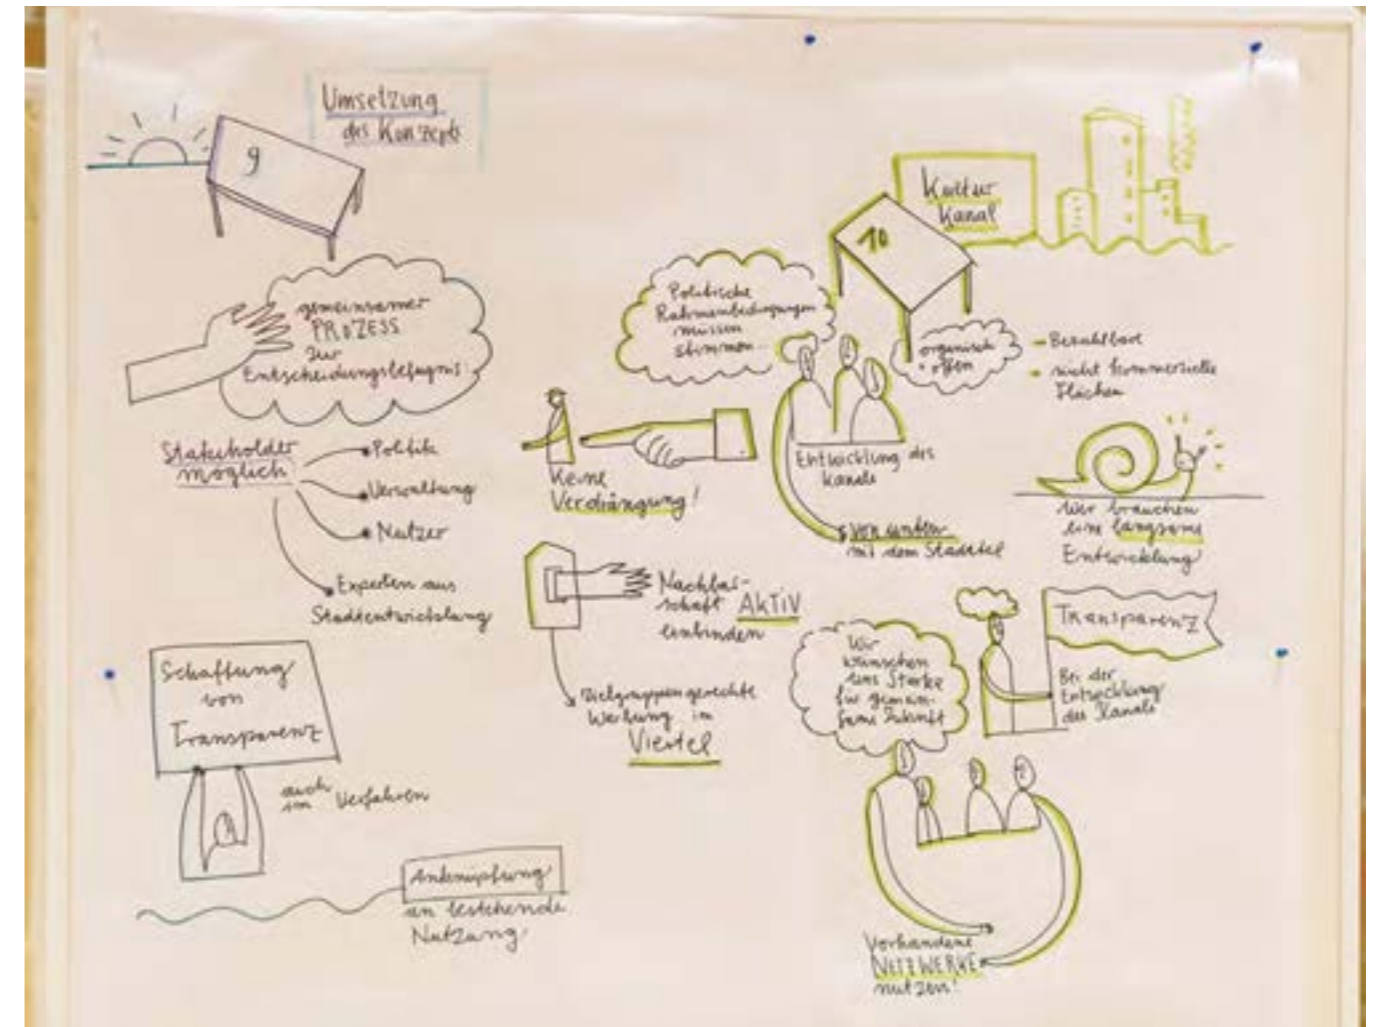 Umsetzung
des Konzepts
9
gemeinsamer
PROZESS
zur
Entscheidungsbefugnis!
Stakeholder
möglich
Politik
Verwaltung
Nutzer
Experten aus
Stadtentwicklung
Schaffung
von
Transparenz
auch
im Verfahren
Anknüpfung
an bestehende
Nutzung
Kultur
Kanal
10
Politische
Rahmenbedingungen
müssen
stimmen...
organisch
offen
Bezahlbare
nicht kommerzielle
Flächen
Entwicklung des
Kanals
von unten
mit dem Stadtteil
Keine
Verdrängung!
Nachbar-
schaft AKTIV
einbinden
Zielgruppengerechte
Werbung im
Viertel
Wir brauchen
eine langsame
Entwicklung
Transparenz
Bei der
Entwicklung
des Kanals
Wir
wünschen
uns Stärke
für gemein-
same Zukunft
Vorhandene
NETZWERKE
nutzen!